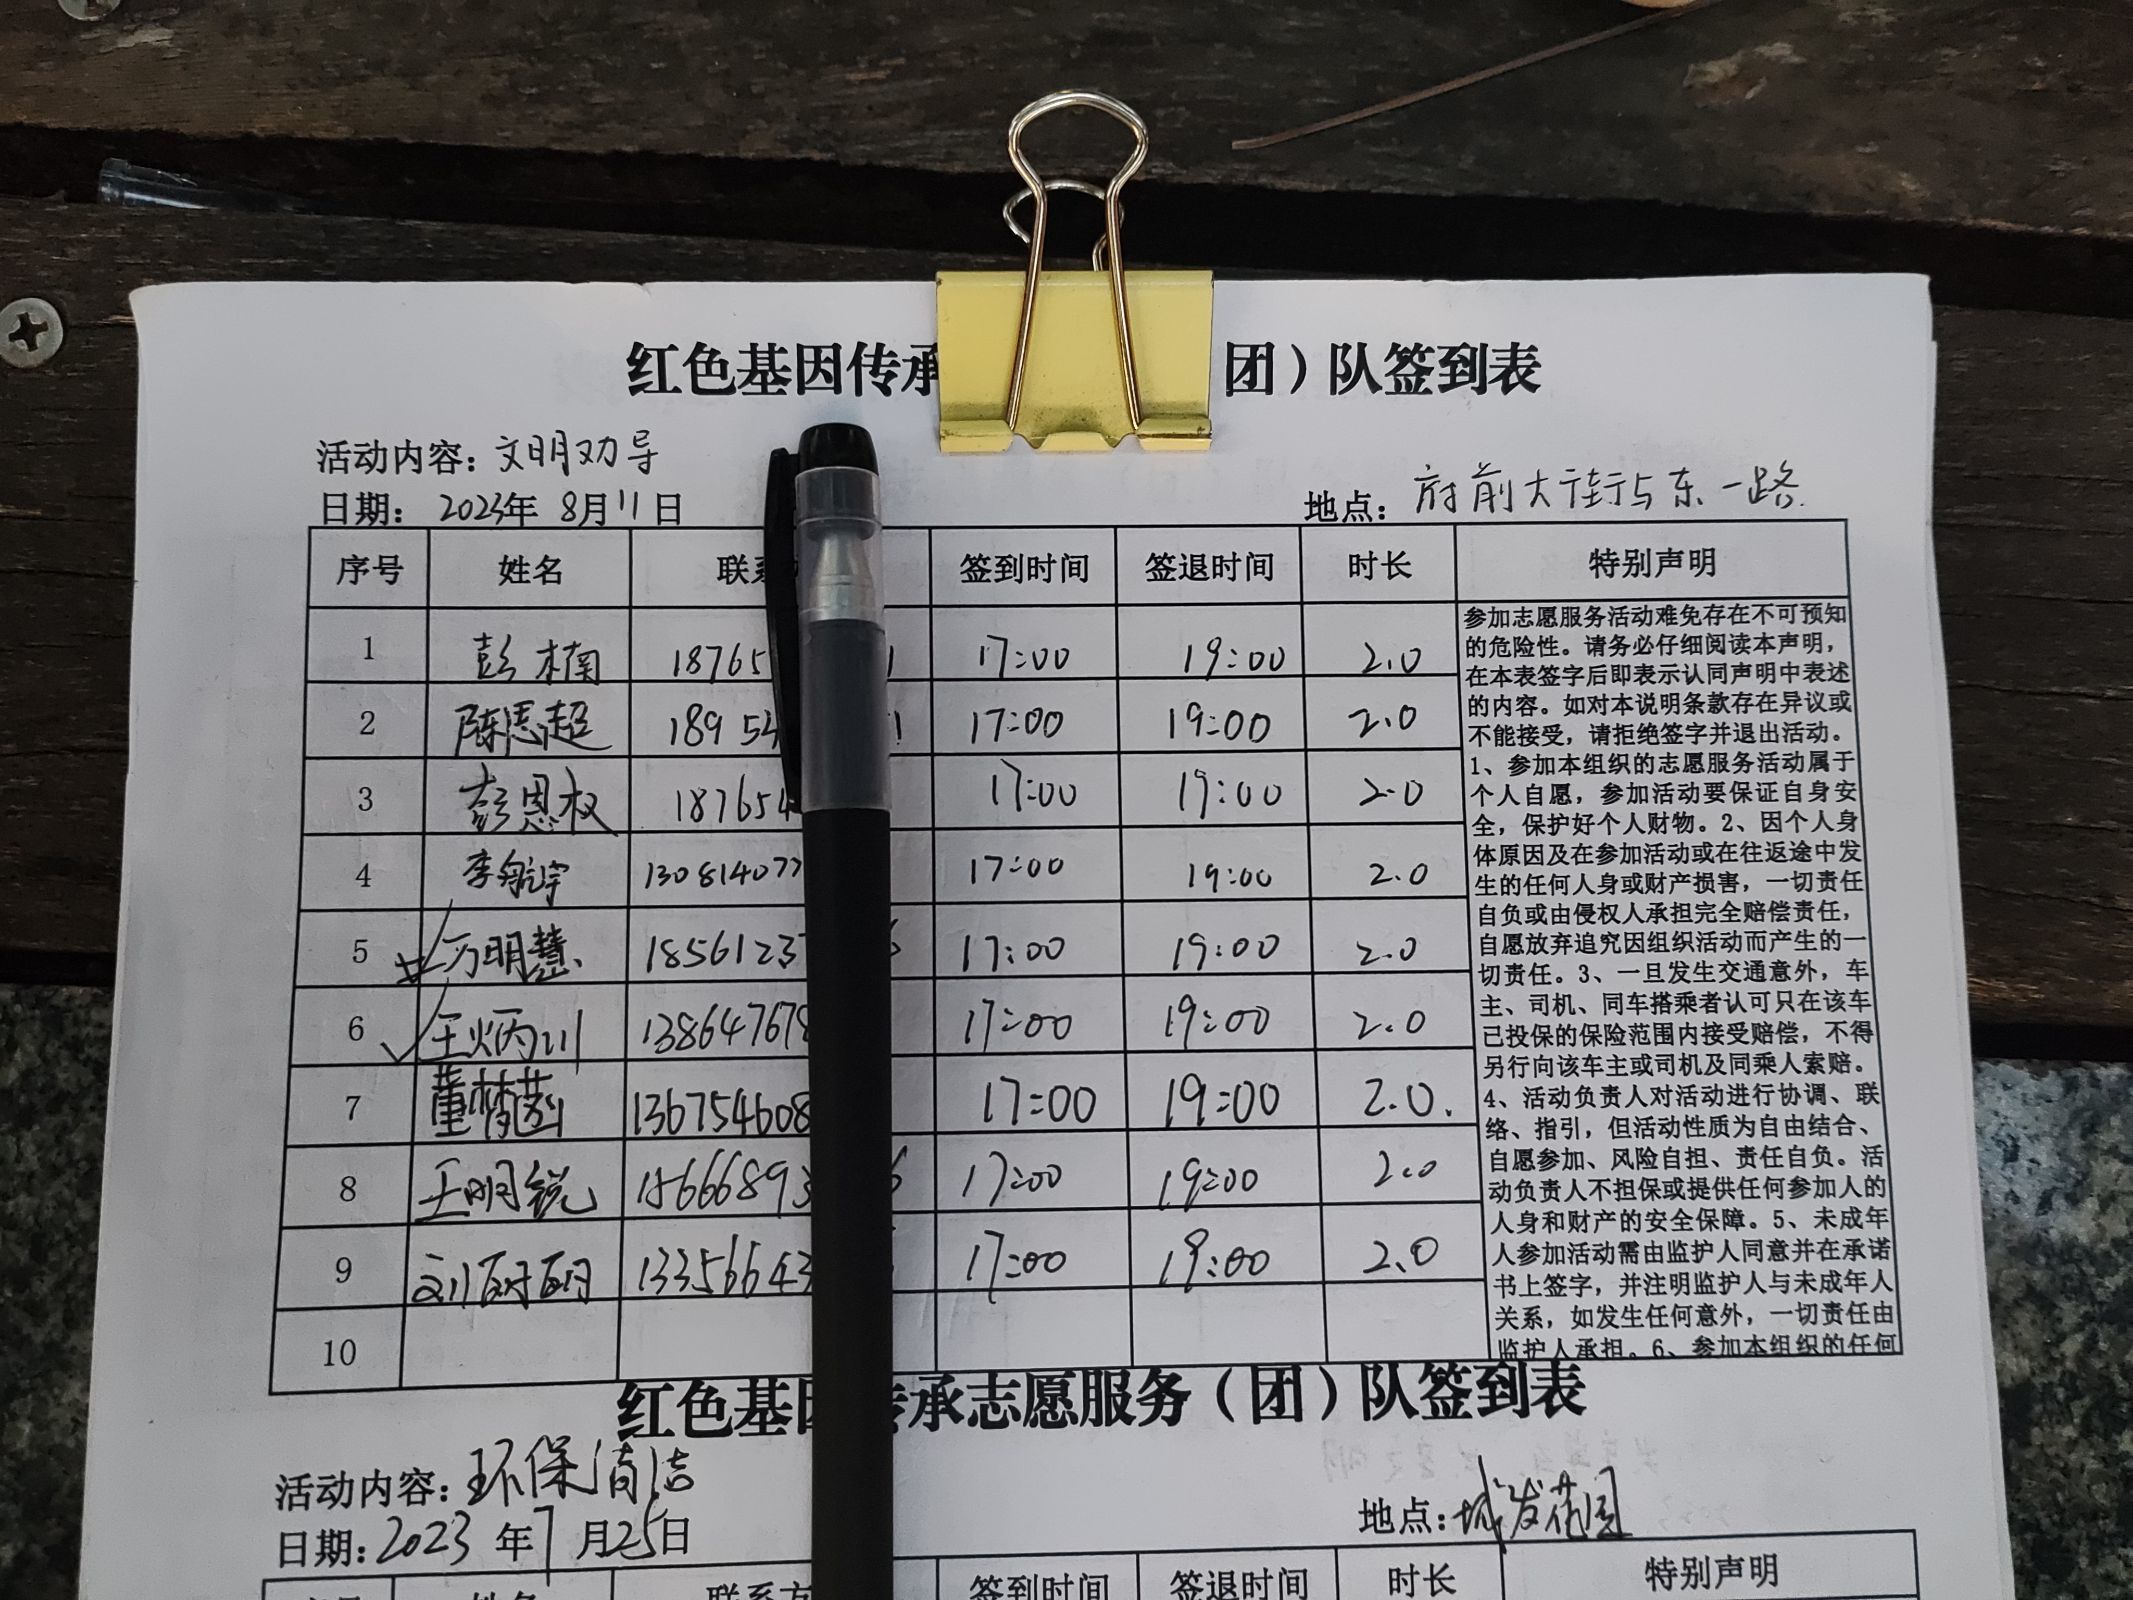 红色基因传承 团）队签到表
活动内容：文明劝导
日期：2023年 8月11日 地点：府前大街与东一路
序号 姓名 联系 签到时间 签退时间 时长 特别声明
1 彭楠 18765 1 17:00 19:00 2.0
2 陈思超 18954 1 17:00 19:00 2.0
3 彭恩权 187654 17:00 19:00 2.0
4 李航宇 130814077 17:00 19:00 2.0
5 万明慧 18561237 17:00 19:00 2.0
6 王炳川 138647678 17:00 19:00 2.0
7 董梦菡 136754608 17:00 19:00 2.0.
8 王明锐 15666893 6 17:00 19:00 2.0
9 刘 13356643 17:00 19:00 2.0
10
参加志愿服务活动难免存在不可预知
的危险性。请务必仔细阅读本声明，
在本表签字后即表示认同声明中表述
的内容。如对本说明条款存在异议或
不能接受，请拒绝签字并退出活动。
1、参加本组织的志愿服务活动属于
个人自愿，参加活动要保证自身安
全，保护好个人财物。2、因个人身
体原因及在参加活动或在往返途中发
生的任何人身或财产损害，一切责任
自负或由侵权人承担完全赔偿责任，
自愿放弃追究因组织活动而产生的一
切责任。3、一旦发生交通意外，车
主、司机、同车搭乘者认可只在该车
已投保的保险范围内接受赔偿，不得
另行向该车主或司机及同乘人索赔。
4、活动负责人对活动进行协调、联
络、指引，但活动性质为自由结合、
自愿参加、风险自担、责任自负。活
动负责人不担保或提供任何参加人的
人身和财产的安全保障。5、未成年
人参加活动需由监护人同意并在承诺
书上签字，并注明监护人与未成年人
关系，如发生任何意外，一切责任由
监护人承担。6、参加本组织的任何
红色基因传承志愿服务（团）队签到表
活动内容：环保清洁
日期：2023 年7月25日 地点：城发花园
姓名 联系方 签到时间 签退时间 时长 特别声明